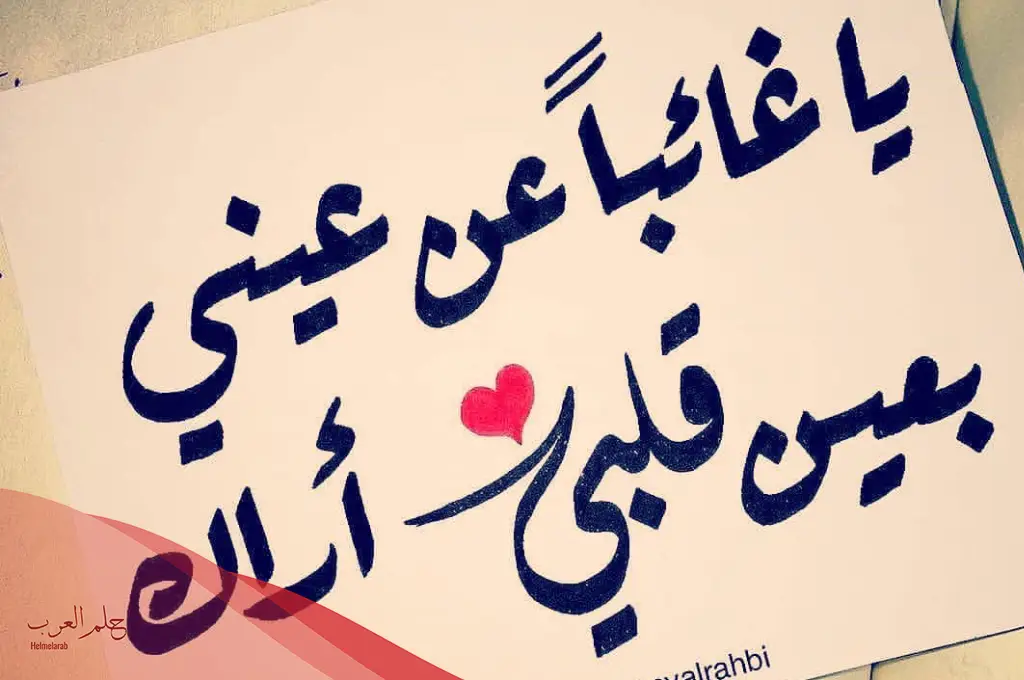 يا غائباً عن عيني
بعين قلبي أراك
حلم العرب
Helmelarab